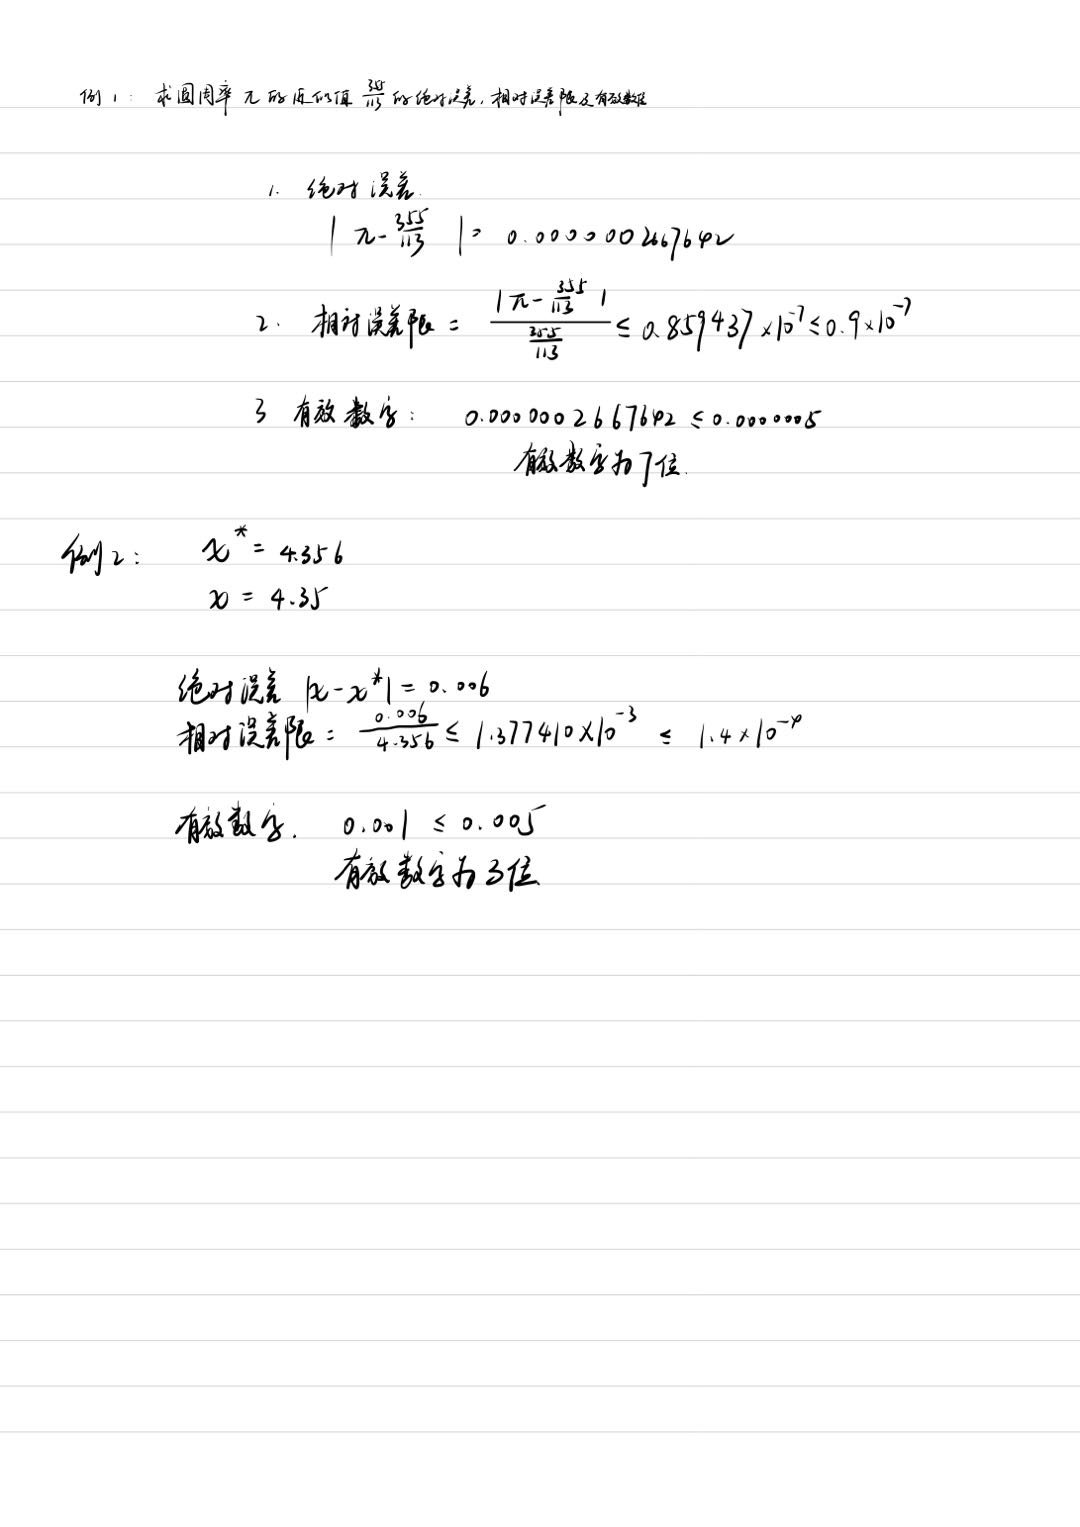 例1: 求圆周率π的近似值 355/113 的绝对误差,相对误差限及有效数位
1. 绝对误差.
|π-355/113| = 0.0000002667642
2. 相对误差限 = |π-355/113| / (355/113) ≤ 0.859437×10⁻⁷ ≤ 0.9×10⁻⁷
3 有效数字: 0.0000002667642 ≤ 0.0000005
有效数字为7位.
例2: x* = 4.356
x = 4.35
绝对误差 |x-x*| = 0.006
相对误差限: = 0.006/4.356 ≤ 1.377410×10⁻³ ≤ 1.4×10⁻⁴
有效数字. 0.001 ≤ 0.005
有效数字为3位